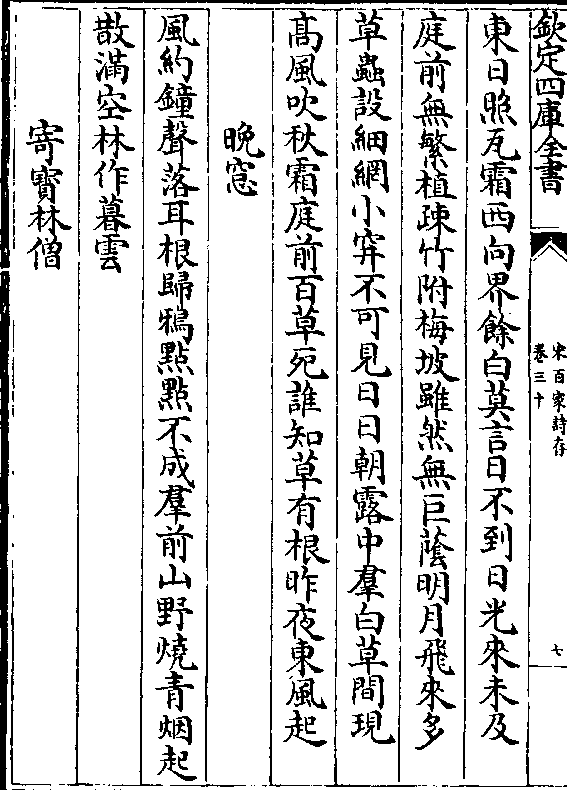 欽定四庫全書
宋百家詩存
卷三十
七
東日照瓦霜西向界餘白莫言日不到日光來未及
庭前無繁植疎竹附梅坡雖然無巨蔭明月飛來多
草蟲設細網小穽不可見日日朝露中羣白草間現
髙風吹秋霜庭前百草死誰知草有根昨夜東風起
晚窓
風約鐘聲落耳根歸鴉點點不成羣前山野燒青烟起
散滿空林作暮雲
寄寳林僧